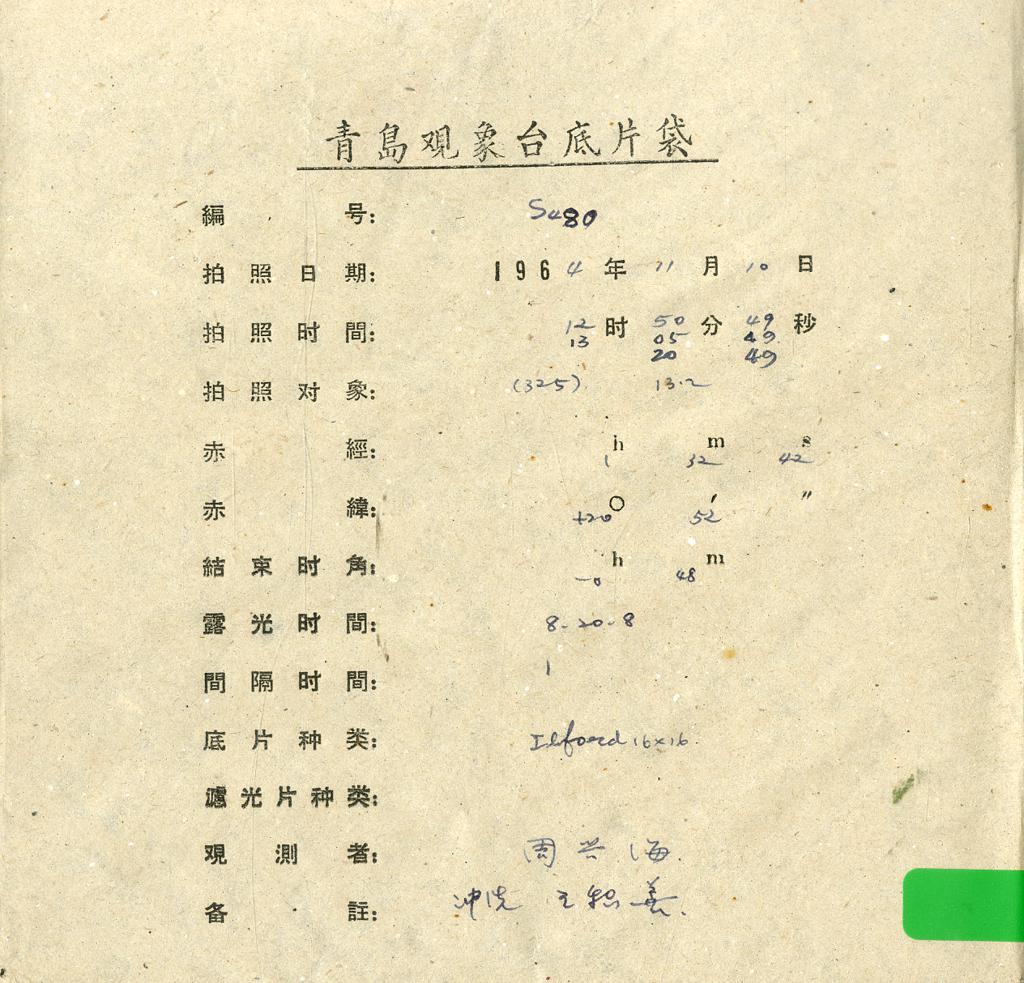 青島观象台底片袋
編号: S480
拍照日期: 1964年11月10日
拍照时間: 12时50分49秒
13 05 49
20 49
拍照对象: (325) 13.2
赤經: 1h 32m 42s
赤緯: +20° 52′ ″
結束时角: -0h 48m
露光时間: 8-20-8
間隔时間: 1
底片种类: Ilford 16×16
濾光片种类:
观測者: 周兴海
备註: 冲洗 王 善